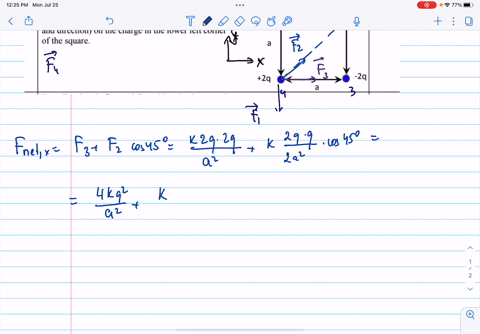 12:25 PM Mon Jul 25
77%
and direction) on the charge in the lower left corner
of the square.
a
F₂
x
F₄
+2q
F₃
-2q
4
a
3
F₁
Fnet,x = F₃ + F₂ cos45° = K2q·2q/a² + K 2q·q/2a² · cos45° =
= 4Kq²/a² + K
1
2